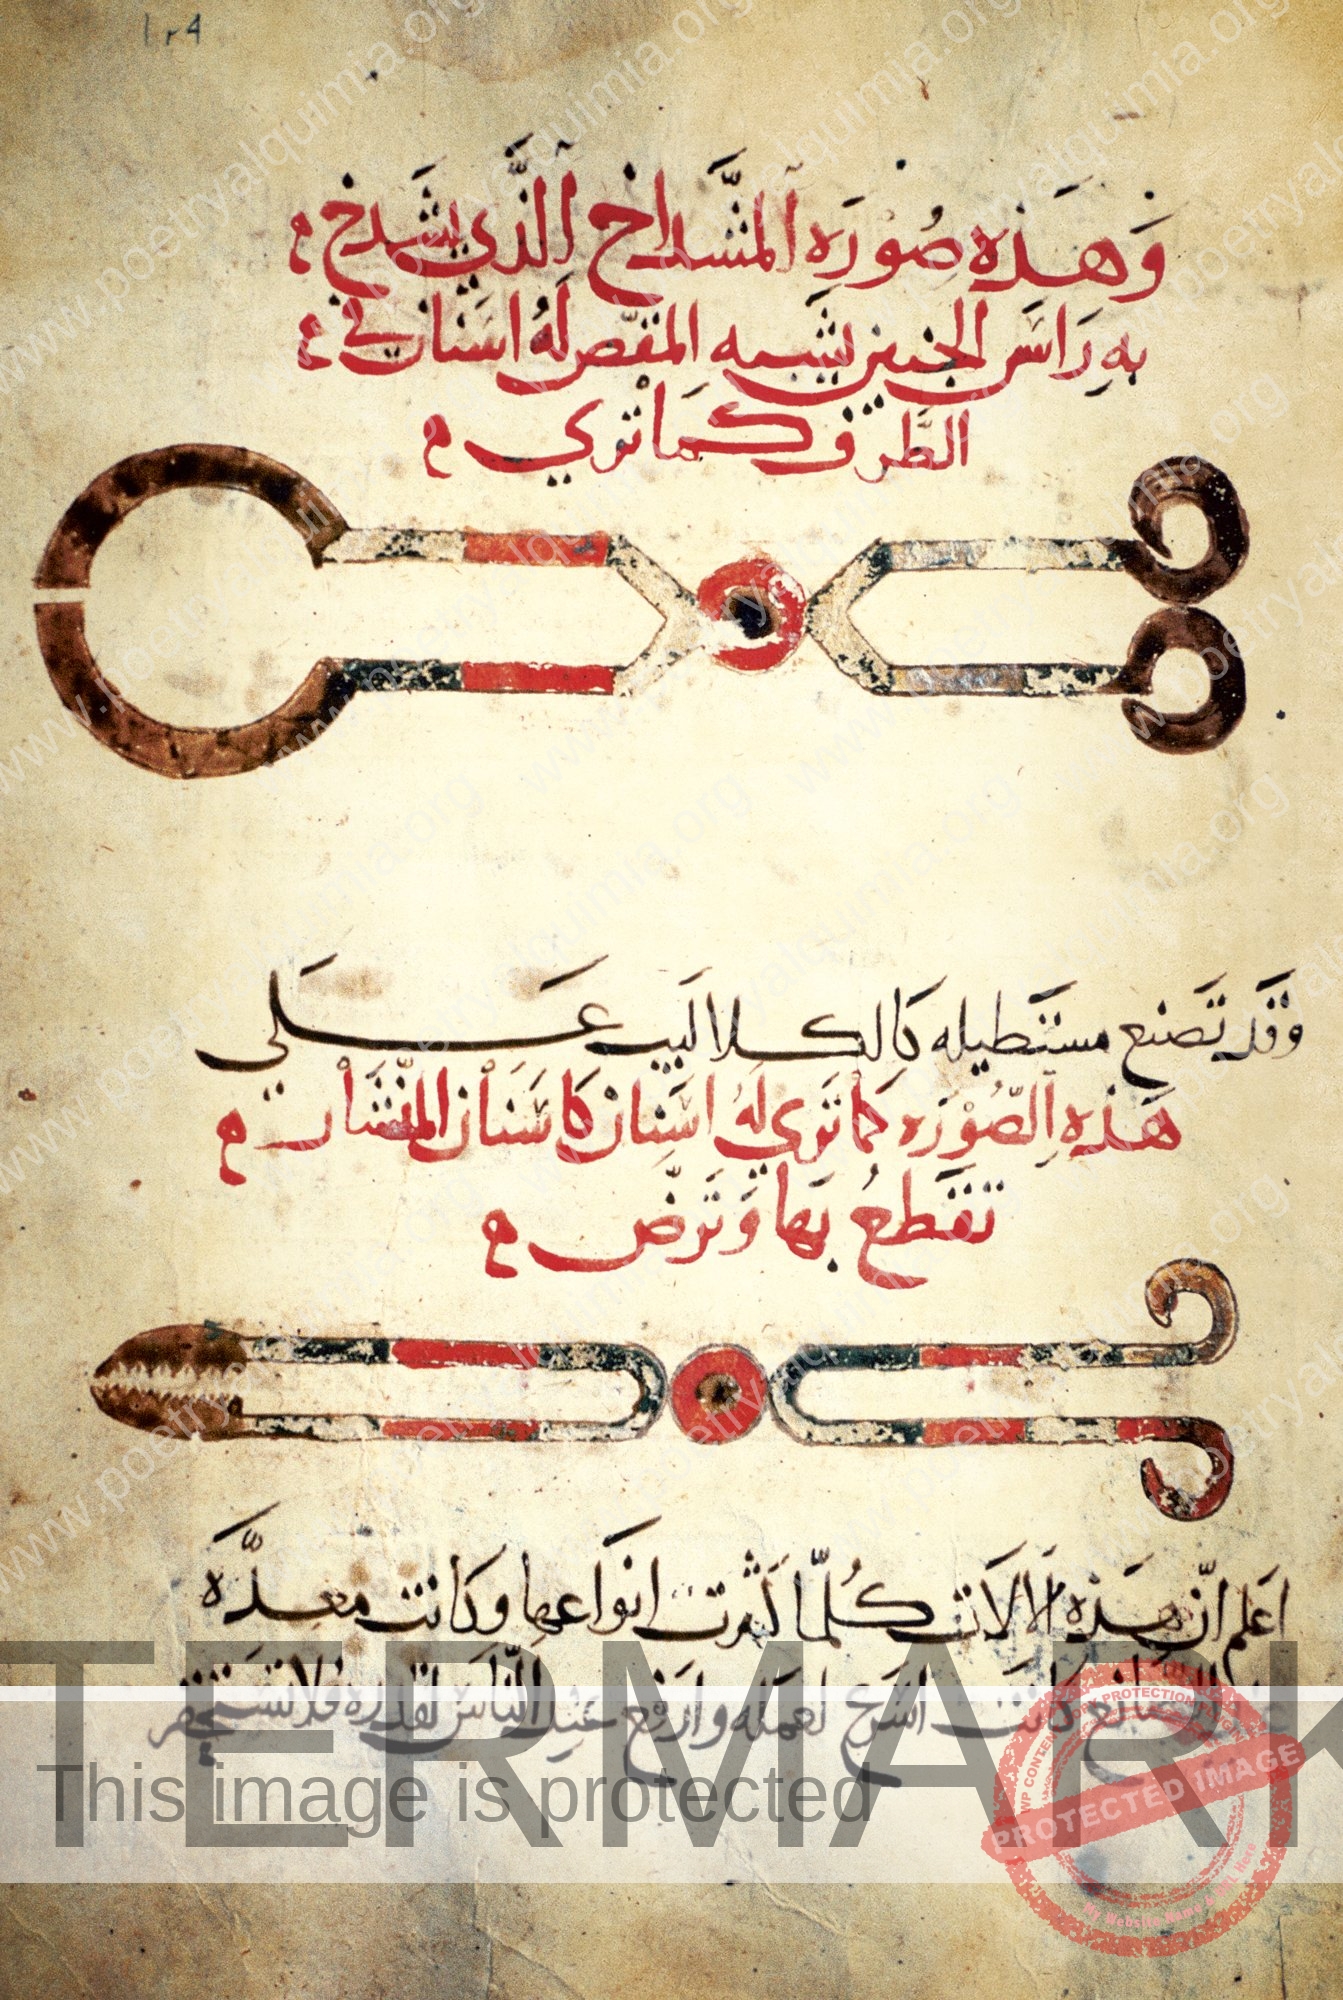 ١٢٩
وَهَذِه صُورَه اَلمشَّداخ اَلَّذي يشَدخ
بهِ رَاسَ الجَنين يشَبه المقَصّ لَهُ اسَنان في
الطَّرَف كَمَا تَري
وَقَد تَصنع مستَطيله كَالِكلاليَب عَلَي
هَذِه اِلصّوُرَه كمَا تَري لَهُ اسَنان كَاسَنَان المنَّشَار
تقَطعُ بهَا وَترَضّ
اعَلم انّ هَذِه اَلالاَت كُلمّا كَثرت انوَاعهِا وكَانت معَدَّه
الصَانع كانت اسَرع لعمَله وارفع عنِد النَّاس لقدره فلا تستحقر
www.poetryalquimia.org
TERMARK
This image is protected
WP CONTENT COPY PROTECTION PLUGIN
PROTECTED IMAGE
My Website Name & URL Here